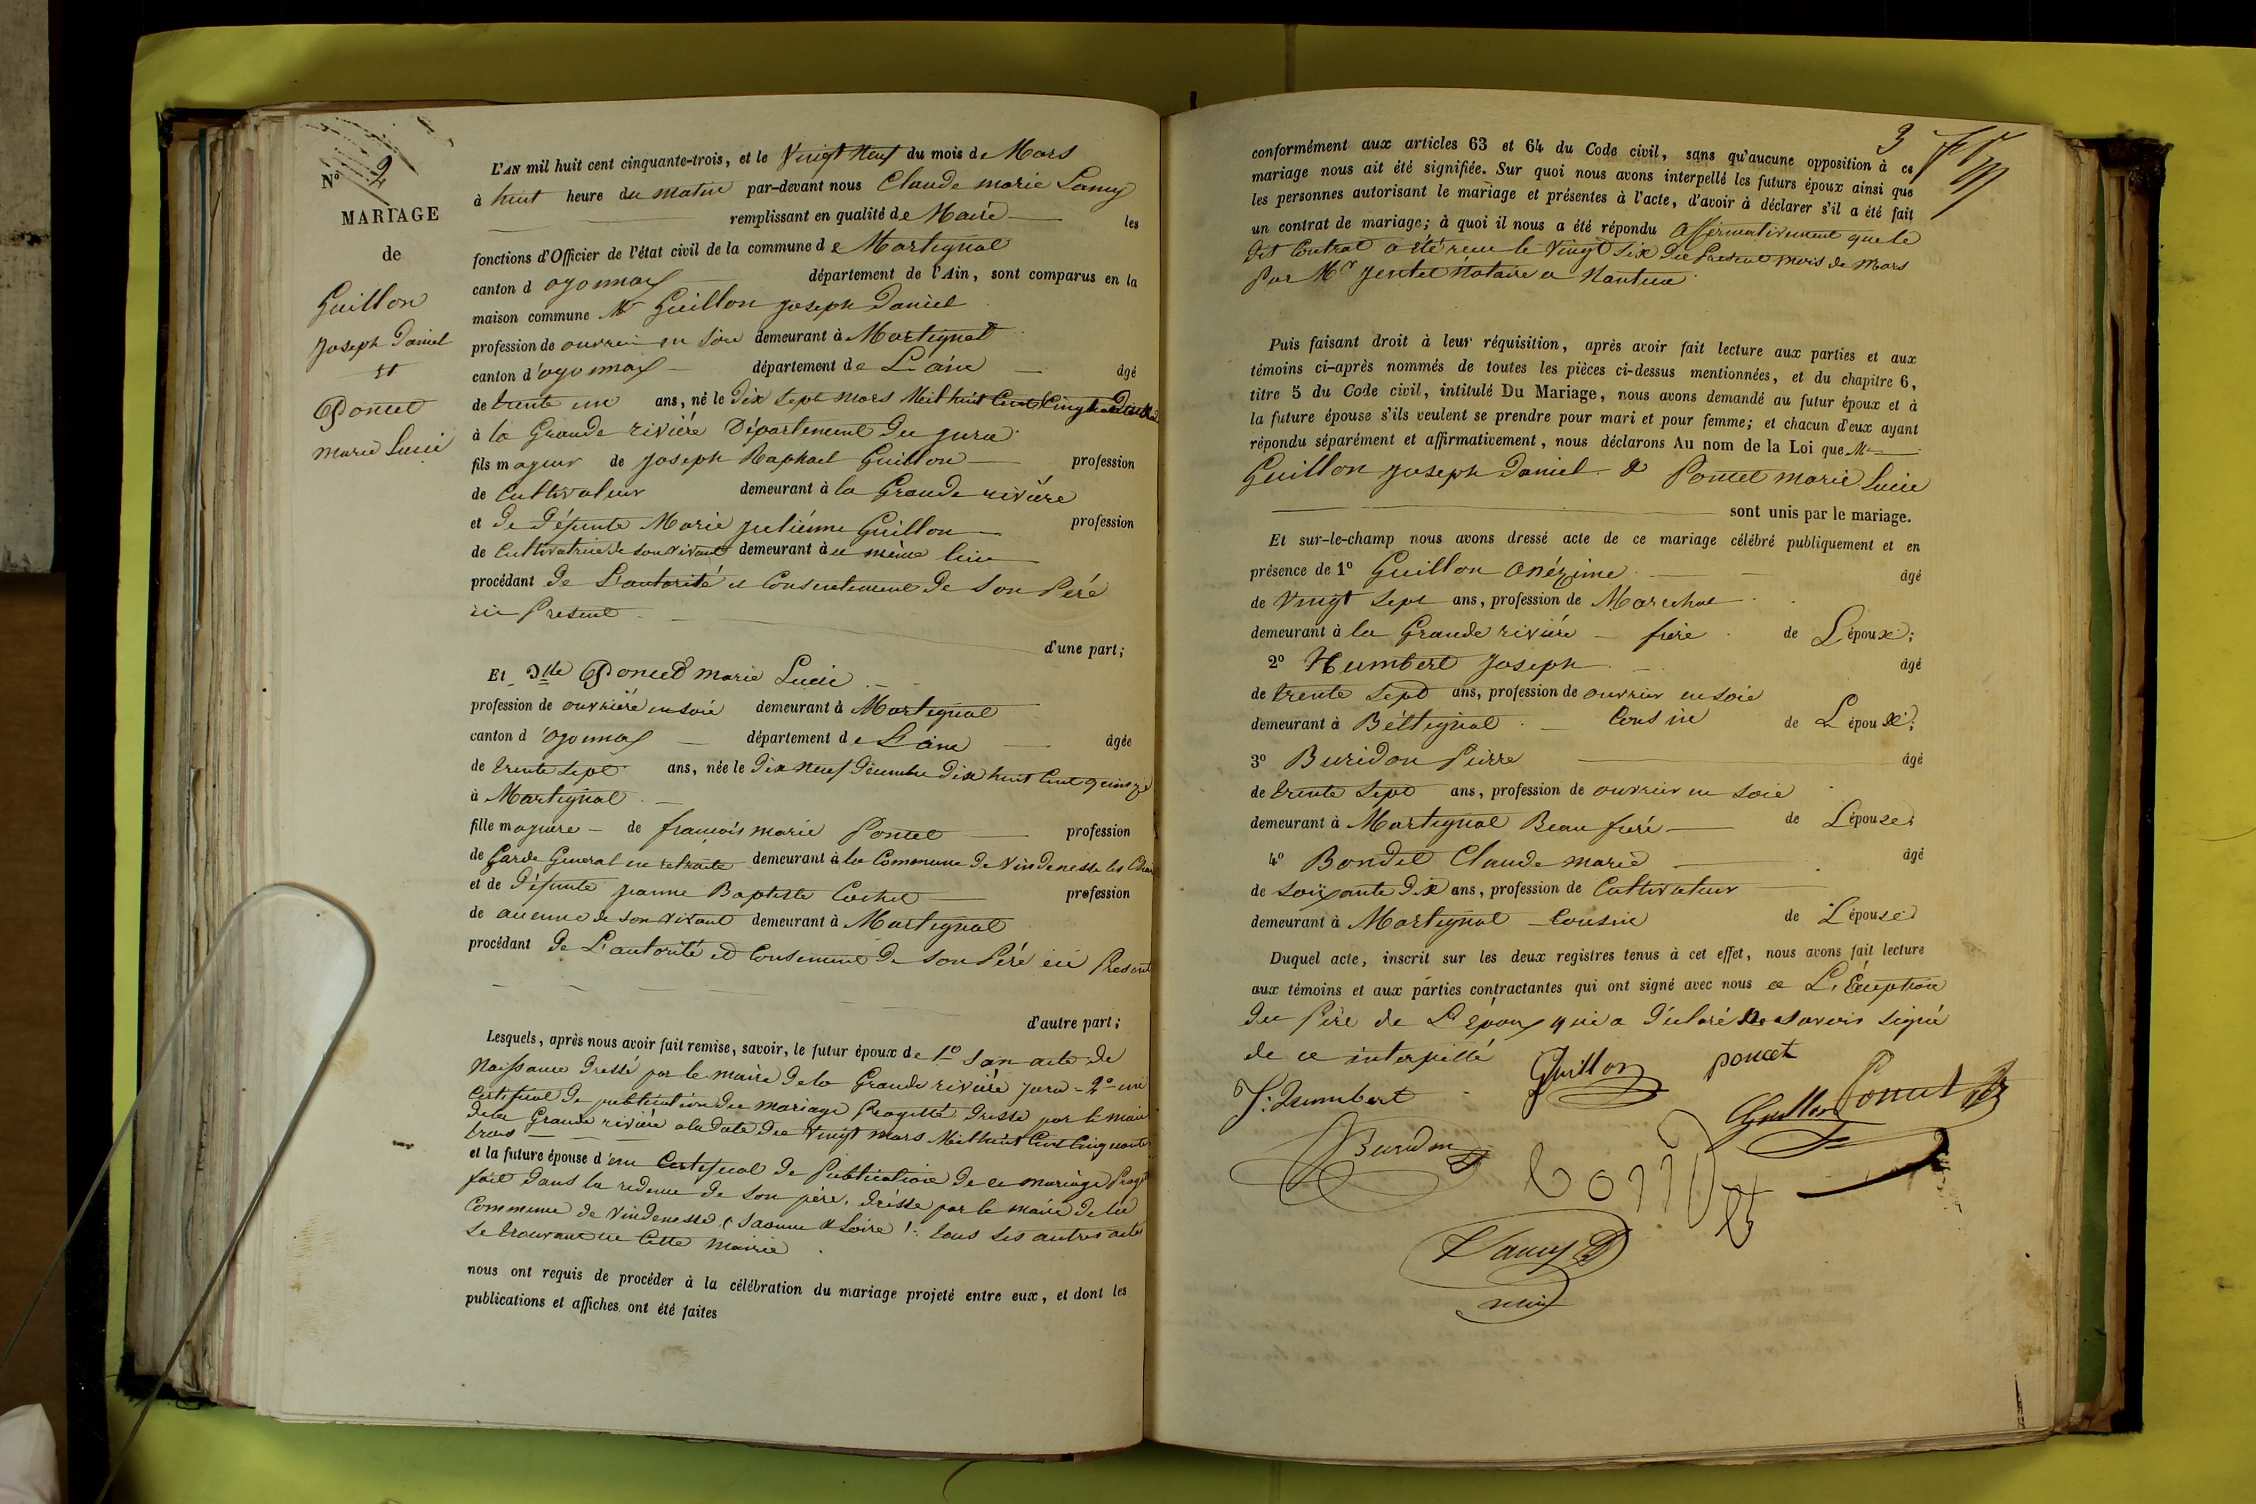 No 2
MARIAGE
de
Guillon
Joseph Daniel
et
Poncet
marie Lucie
L'AN mil huit cent cinquante-trois, et le Vingt Neuf du mois de Mars
à huit heure du matin par-devant nous Claude marie Lamy
remplissant en qualité de Maire les
fonctions d'Officier de l'état civil de la commune de Martignat
canton d oyonnax département de l'Ain, sont comparus en la
maison commune Mr Guillon Joseph Daniel
profession de ouvrier en Soie demeurant à Martignat
canton d'oyonnax département de L'ain âgé
de trente un ans, né le dix Sept mars Mil huit Cent
à la Grande rivière Département du jura
fils majeur de Joseph Raphael Guillon profession
de Cultivateur demeurant à la Grande rivière
et de Défunte Marie julienne Guillon profession
de Cultivatrice de son vivant demeurant à ce même lieu
procédant de L'autorité et Consentement de Son Péré
ici Present
d'une part;
Et Dlle Poncet marie Lucie
profession de ouvrière en soie demeurant à Martignat
canton d'oyonnax département de L'ain âgée
de trente Sept ans, née le dix Neuf décembre dix huit Cent quinze
à Martignat
fille majeure de françois marie Poncet profession
de Garde Général en retraite demeurant à la Commune de Vindenesse les
et de Défunte jeanne Baptiste Cochet profession
de aucune de son vivant demeurant à Martignat
procédant de L'autorité et Consement de Son Péré ici Present
d'autre part;
Lesquels, après nous avoir fait remise, savoir, le futur époux de 1º Son acte de
Naissance Dressé par le maire de la Grande rivière jura - 2º un
Certificat de publication du mariage Progetté Dressé par le maire
de la Grande rivière a la date du Vingt mars Mil huit Cent Cinquante
trois
et la future épouse d'un Certificat de Publication de ce mariage
fait dans la de son père, dressé par le maire de la
Commune de Vindenesse (Saonne & Loire). tous les autres actes
se trouvant en Cette Mairie
nous ont requis de procéder à la célébration du mariage projeté entre eux, et dont les
publications et affiches ont été faites
3
conformément aux articles 63 et 64 du Code civil, sans qu'aucune opposition à ce
mariage nous ait été signifiée. Sur quoi nous avons interpellé les futurs époux ainsi que
les personnes autorisant le mariage et présentes à l'acte, d'avoir à déclarer s'il a été fait
un contrat de mariage; à quoi il nous a été répondu affirmativement que le
dit Contrat a été reçu le Vingt Six du Présent mois de Mars
Par Mr Notaire a Nantua
Puis faisant droit à leur réquisition, après avoir fait lecture aux parties et aux
témoins ci-après nommés de toutes les pièces ci-dessus mentionnées, et du chapitre 6,
titre 5 du Code civil, intitulé Du Mariage, nous avons demandé au futur époux et à
la future épouse s'ils veulent se prendre pour mari et pour femme; et chacun d'eux ayant
répondu séparément et affirmativement, nous déclarons Au nom de la Loi que Mr
Guillon Joseph Daniel & Poncet marie Lucie
sont unis par le mariage.
Et sur-le-champ nous avons dressé acte de ce mariage célébré publiquement et en
présence de 1º Guillon Onézime âgé
de Vingt Sept ans, profession de Marechal
demeurant à la Grande rivière frère de L'époux;
2º Humbert Joseph âgé
de trente Sept ans, profession de ouvrier en soie
demeurant à Béttignat Cousin de L'époux;
3º Buridon Pierre âgé
de trente Sept ans, profession de ouvrier en Soie
demeurant à Martignat Beau frère de L'épouse;
4º Bondet Claude marie âgé
de soixante dix ans, profession de Cultivateur
demeurant à Martignat Cousin de L'épouse
Duquel acte, inscrit sur les deux registres tenus à cet effet, nous avons fait lecture
aux témoins et aux parties contractantes qui ont signé avec nous a L'Exeption
du Père de L'Epoux qui a déclaré Ne savoir Signé
de ce interpellé
Guillon poncet
J. humbert Guillon Poncet
Buridon
Lamy